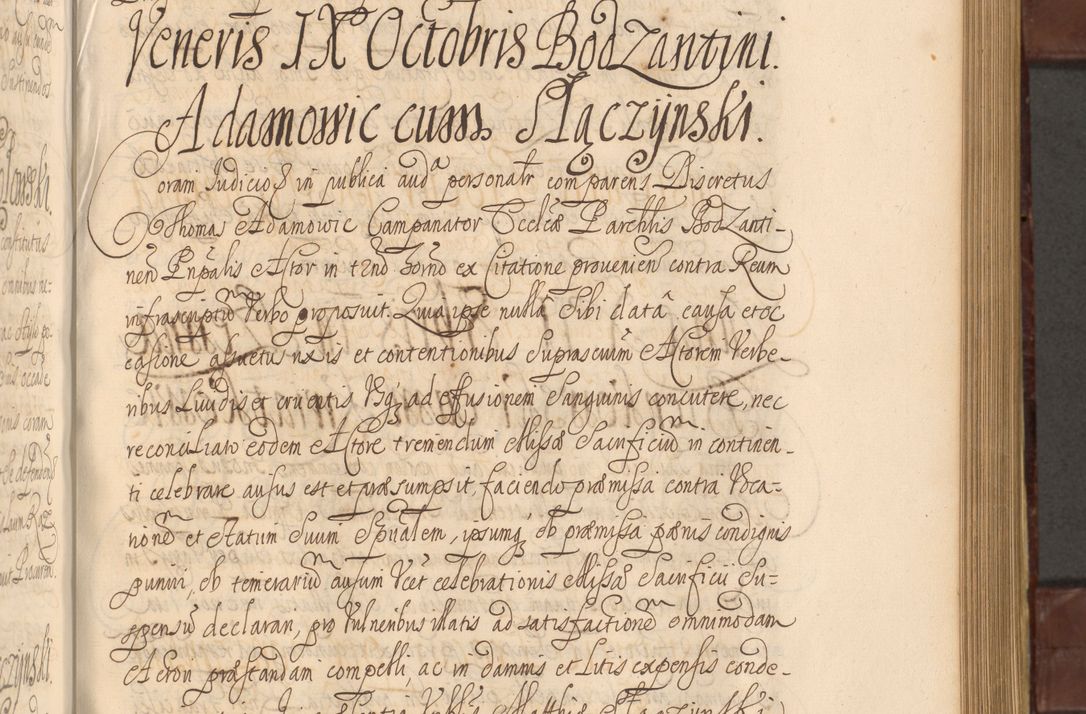 Veneris IX Octobris BodZantini.
Adamowic cum Słączÿnski.
Coram Judicio in publica audª personalr comparens Discretus
Thomas Adamowic Campanator Eccleæ Parchlis BodZanti-
nen Pnpalis Actor in tnd ex Citatione provenien contra Reum
infrascriptum Verbo proposuit. Quia ipse nulla Sibi data causa et oc
casione assuetus rixis et contentionibus Suprascrium Actorem Verbe-
ribus Liuidis et cruentis usq ad effusionem Sanguinis concutere, nec
reconciliato eodem Actore tremendum Missæ Sacrificium in continen-
ti celebrare ausus est et præsumpsit, faciendo præmissa contra Voca-
tionem et Statum Suum Spualem, ipsumq ob præmissa pænis condignis
puniri, ob temerarium ausum Vcet celebrationis Missæ Sacrificii Su-
spensum declaran, pro Vulneribus illatis ad satisfactionem omnimodam
Actori præstandam compelli, ac in damnis et Litis expensis conde-